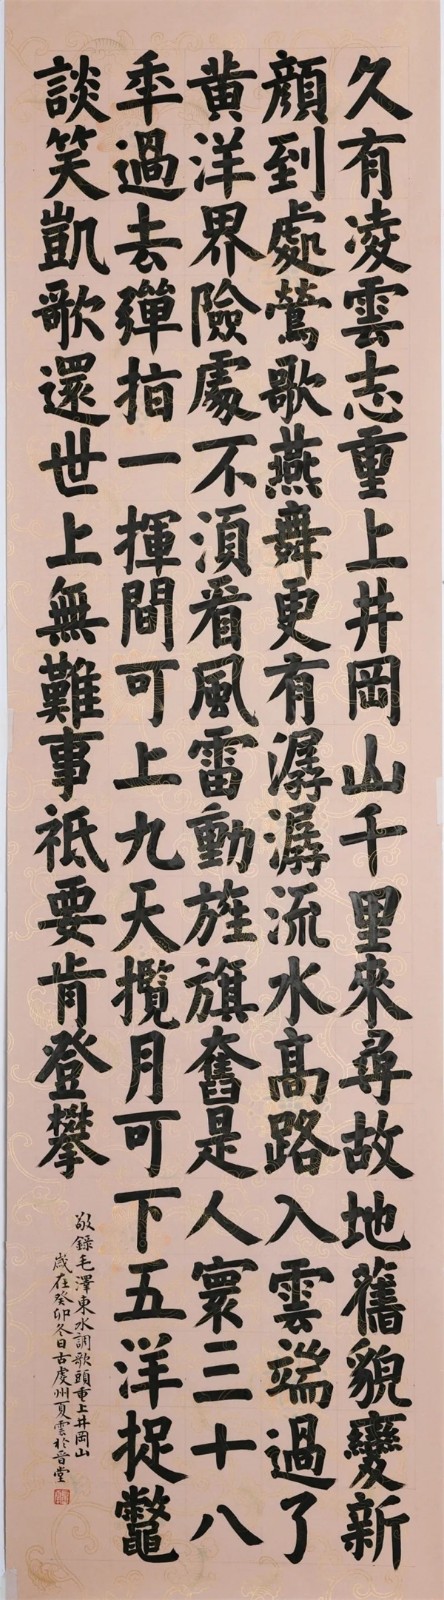 久有凌雲志重上井岡山千里來尋故地舊貌變新
顏到處鶯歌燕舞更有潺潺流水高路入雲端過了
黄洋界險處不須看風雷動旌旗奮是人寰三十八
年過去彈指一揮間可上九天攬月可下五洋捉鱉
談笑凱歌還世上無難事衹要肯登攀
敬録毛澤東水調歌頭重上井岡山
歲在癸卯冬日古虔州夏雲於晉堂